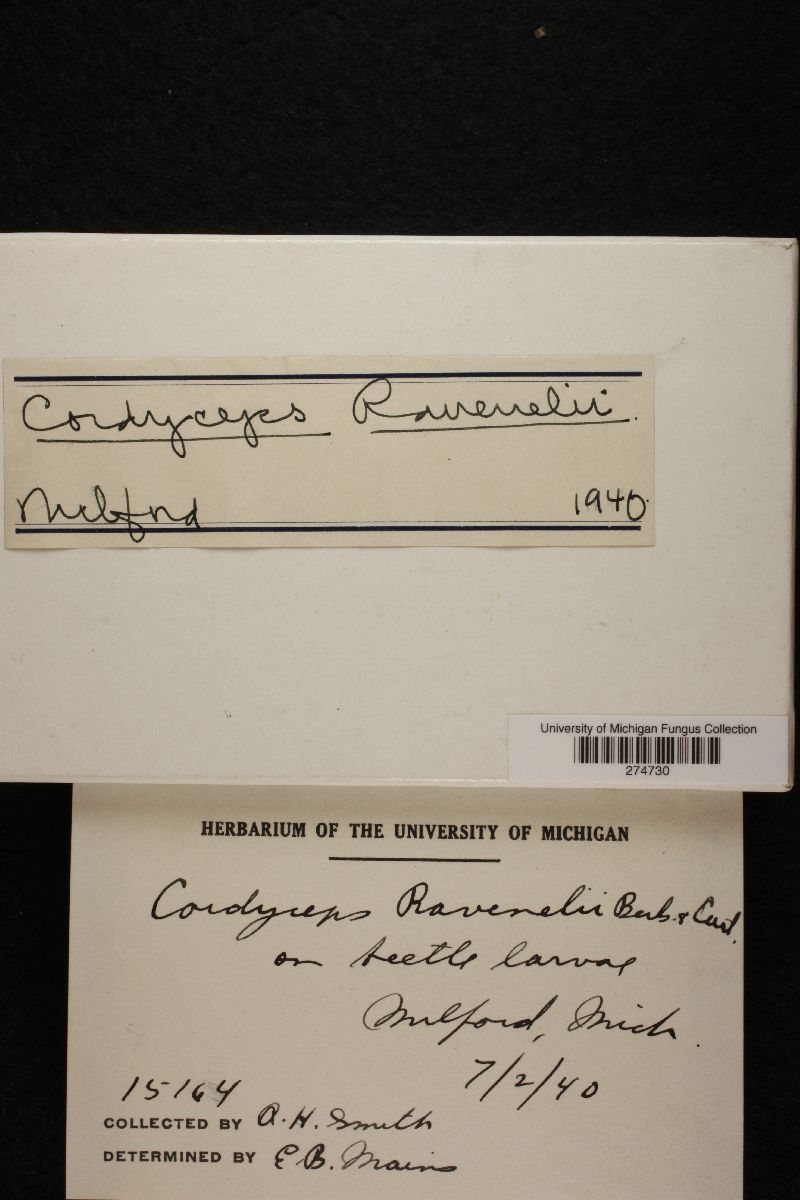 Cordyceps Ravenelii.
Milford 1940.
University of Michigan Fungus Collection
274730
HERBARIUM OF THE UNIVERSITY OF MICHIGAN
Cordyceps Ravenelii Berk. & Curt.
on beetle larvae
Milford, Mich.
15164 7/2/40
COLLECTED BY A. H. Smith
DETERMINED BY E B. Mains